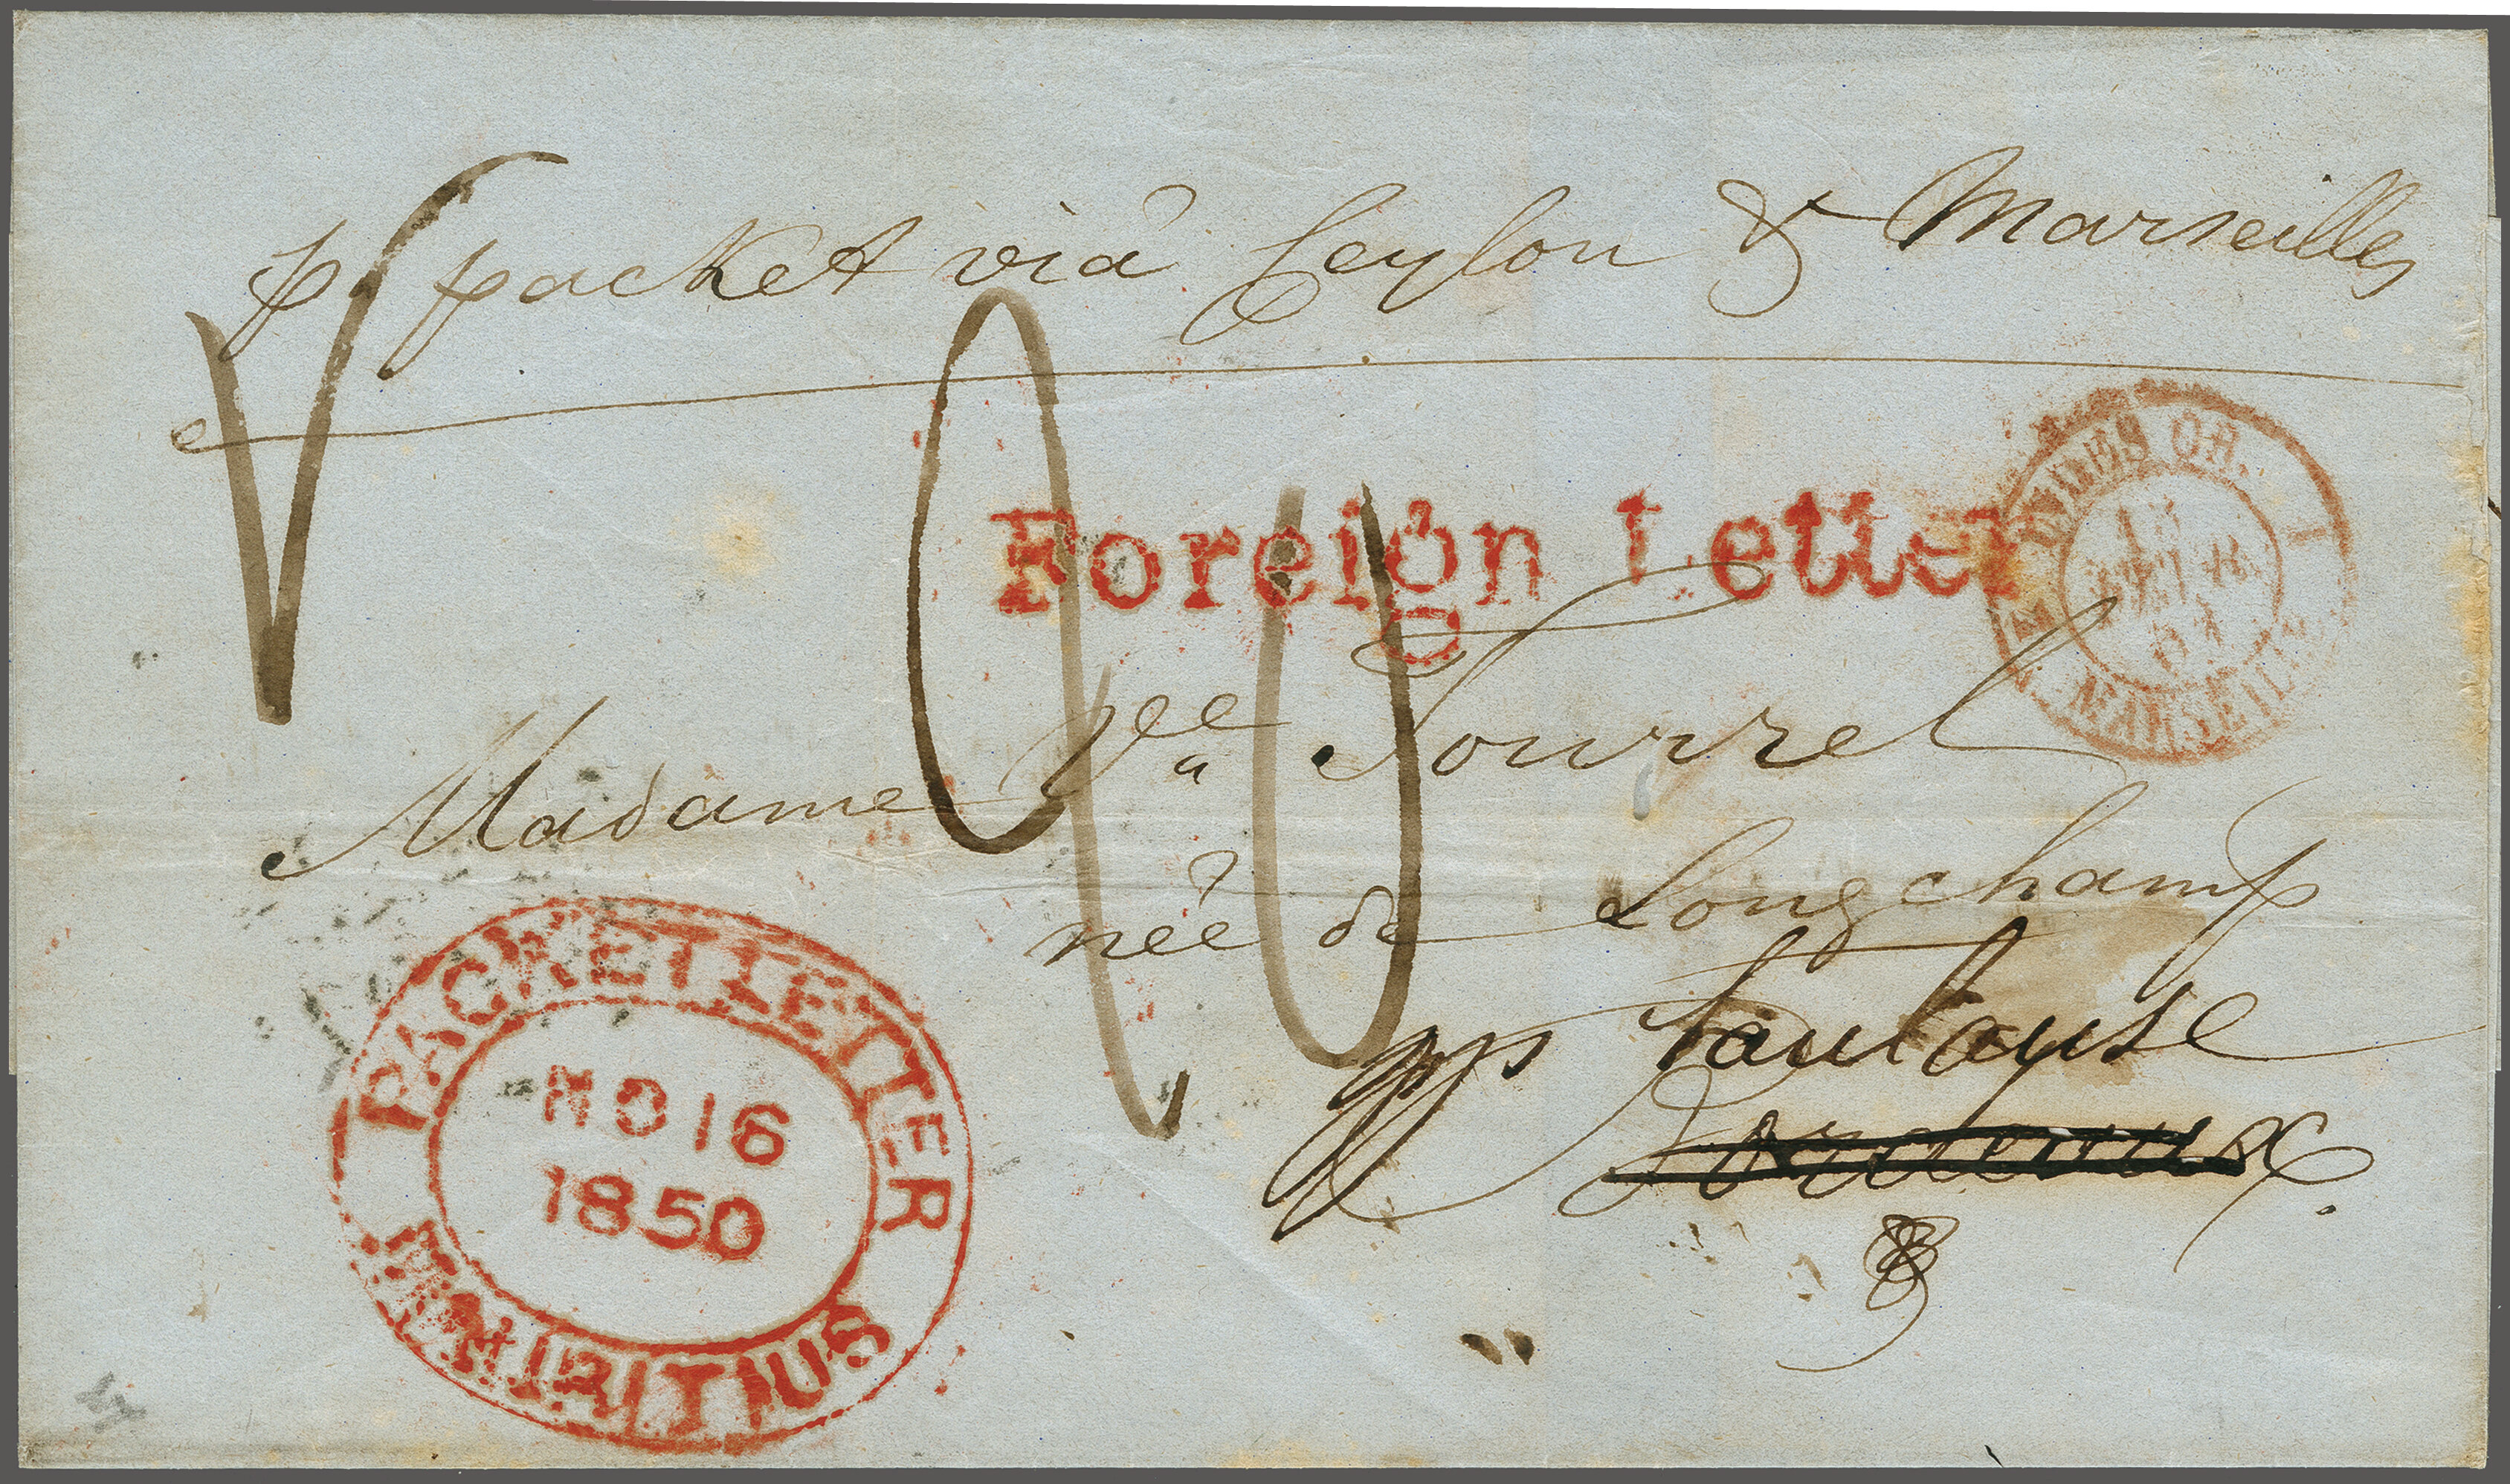 p. packet viâ Ceylon & Marseilles
Foreign Letter
INDES OR.
MARSEILLE
Madame Vve Tourrel
née de Longchamp
Toulouse
Bordeaux.
PACKET LETTER
NO 16
1850
MAURITIUS